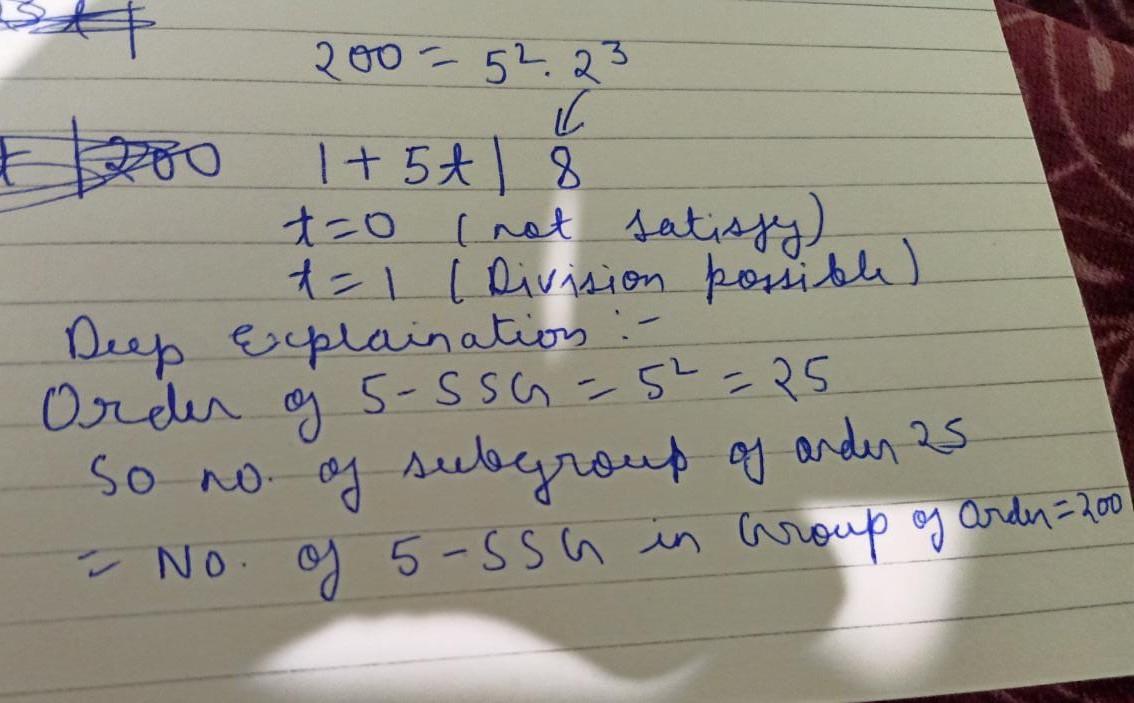 200 = 5². 2³
200 1 + 5t | 8
t=0 (not satisfy)
t=1 (Division possible)
Deep Explaination :-
Order of 5-SSG = 5² = 25
So no. of subgroup of order 25
= No. of 5-SSG in Group of order=200